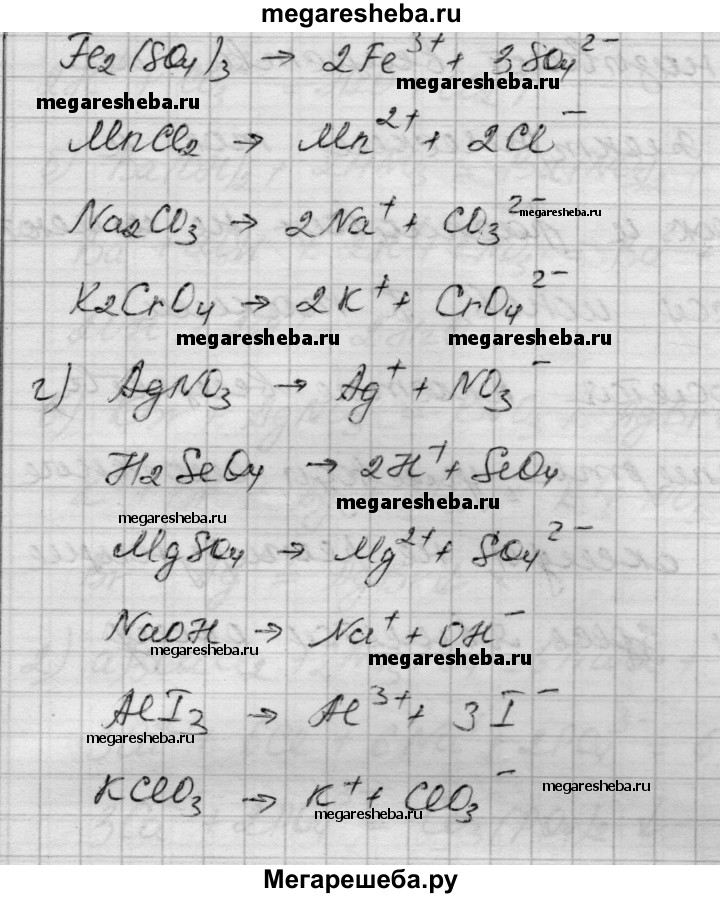 megaresheba.ru
Fe₂(SO₄)₃ → 2Fe³⁺ + 3SO₄²⁻
megaresheba.ru
megaresheba.ru
MnCl₂ → Mn²⁺ + 2Cl⁻
Na₂CO₃ → 2Na⁺ + CO₃²⁻
megaresheba.ru
K₂CrO₄ → 2K⁺ + CrO₄²⁻
megaresheba.ru
megaresheba.ru
г) AgNO₃ → Ag⁺ + NO₃⁻
H₂SeO₄ → 2H⁺ + SeO₄
megaresheba.ru
megaresheba.ru
MgSO₄ → Mg²⁺ + SO₄²⁻
NaOH → Na⁺ + OH⁻
megaresheba.ru
megaresheba.ru
AlI₃ → Al³⁺ + 3I⁻
megaresheba.ru
KClO₃ → K⁺ + ClO₃⁻
megaresheba.ru
megaresheba.ru
Мегарешеба.ру